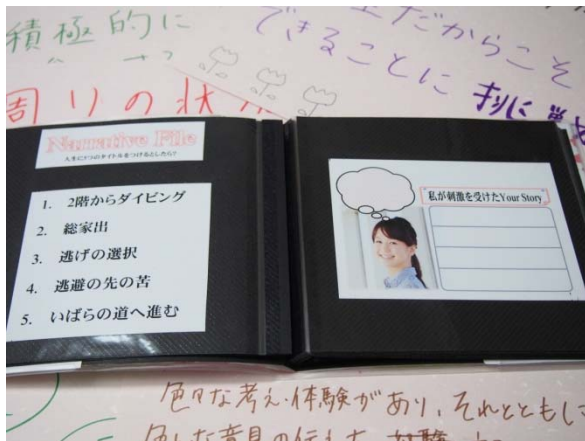 積極的に
だからこそ
できることに
周りの状
Narrative File
人生に5つのタイトルをつけるとしたら?
1. 2階からダイビング
2. 総家出
3. 逃げの選択
4. 逃避の先の苦
5. いばらの道へ進む
私が刺激を受けたYour Story
色々な考え・体験があり、それとともに